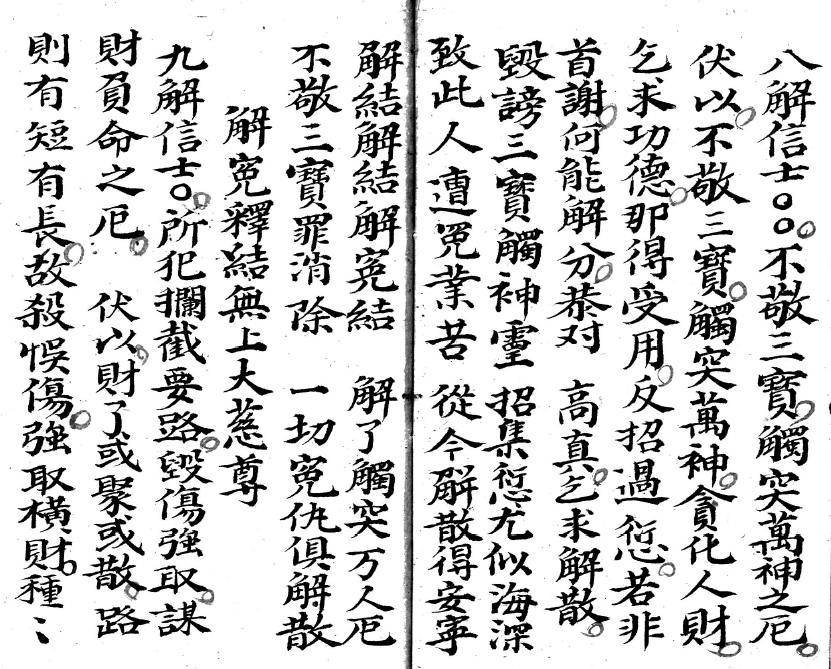 八解信士〇〇。不敬三寳。觸突萬神之厄。
伏以。不敬三寳。觸突萬神。貪化人財。
乞求功德。那得受用。反招過愆。若非
首謝。何能解分。恭对　高真。乞求解散。
毀謗三寳觸神𩃏　招集愆尤似海深
致此人遭冤業苦　從今解散得安寧
解結解結解冤結　解了觸突万人厄
不敬三寳罪消除　一切冤仇俱解散
解冤釋結無上大慈尊
九解信士〇。所犯攔截要路。毀傷強取。謀
財負命之厄。　伏以。財了或聚或散。路
則有短有長。故殺悮傷。強取横財。種〻